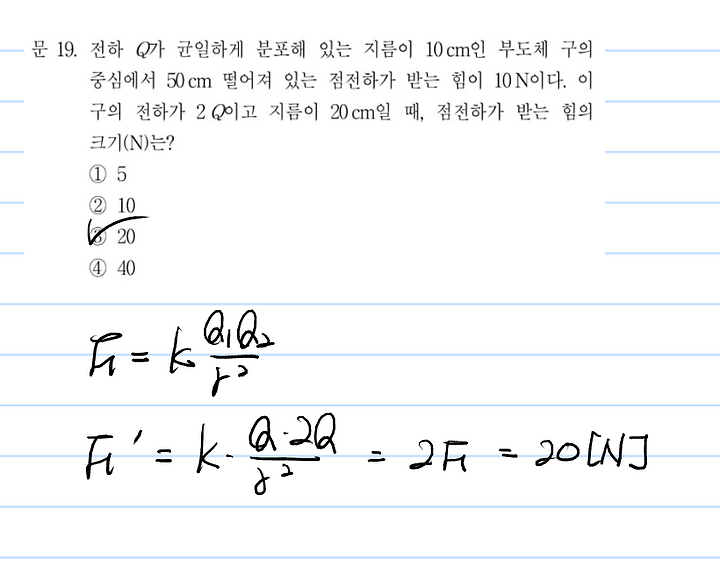 문 19. 전하 Q가 균일하게 분포해 있는 지름이 10 cm인 부도체 구의
중심에서 50 cm 떨어져 있는 점전하가 받는 힘이 10 N이다. 이
구의 전하가 2 Q이고 지름이 20 cm일 때, 점전하가 받는 힘의
크기(N)는?
① 5
② 10
③ 20
④ 40
F₁ = k Q₁Q₂/r²
F₁' = k · Q·2Q/r² = 2F₁ = 20[N]